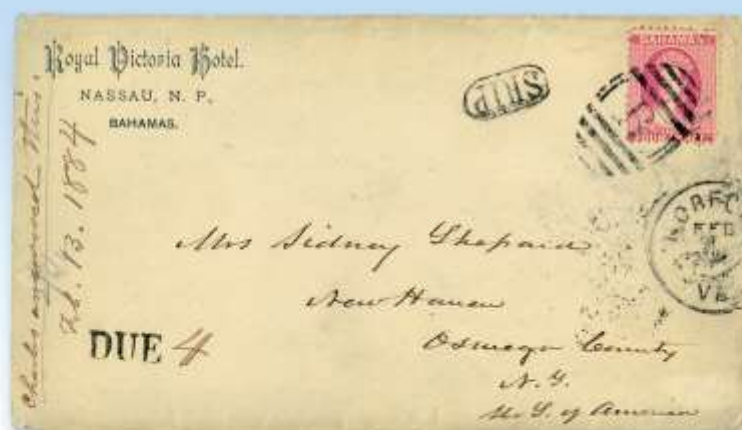 Royal Victoria Hotel.
NASSAU, N. P.,
BAHAMAS.
SHIP
BAHAMAS
NORFO
FEB
VA
Charles answered this.
Feb. 13. 1884
Mrs Sidney Shepard
New Haven
Oswego County
N.Y.
U. S. of America
DUE 4